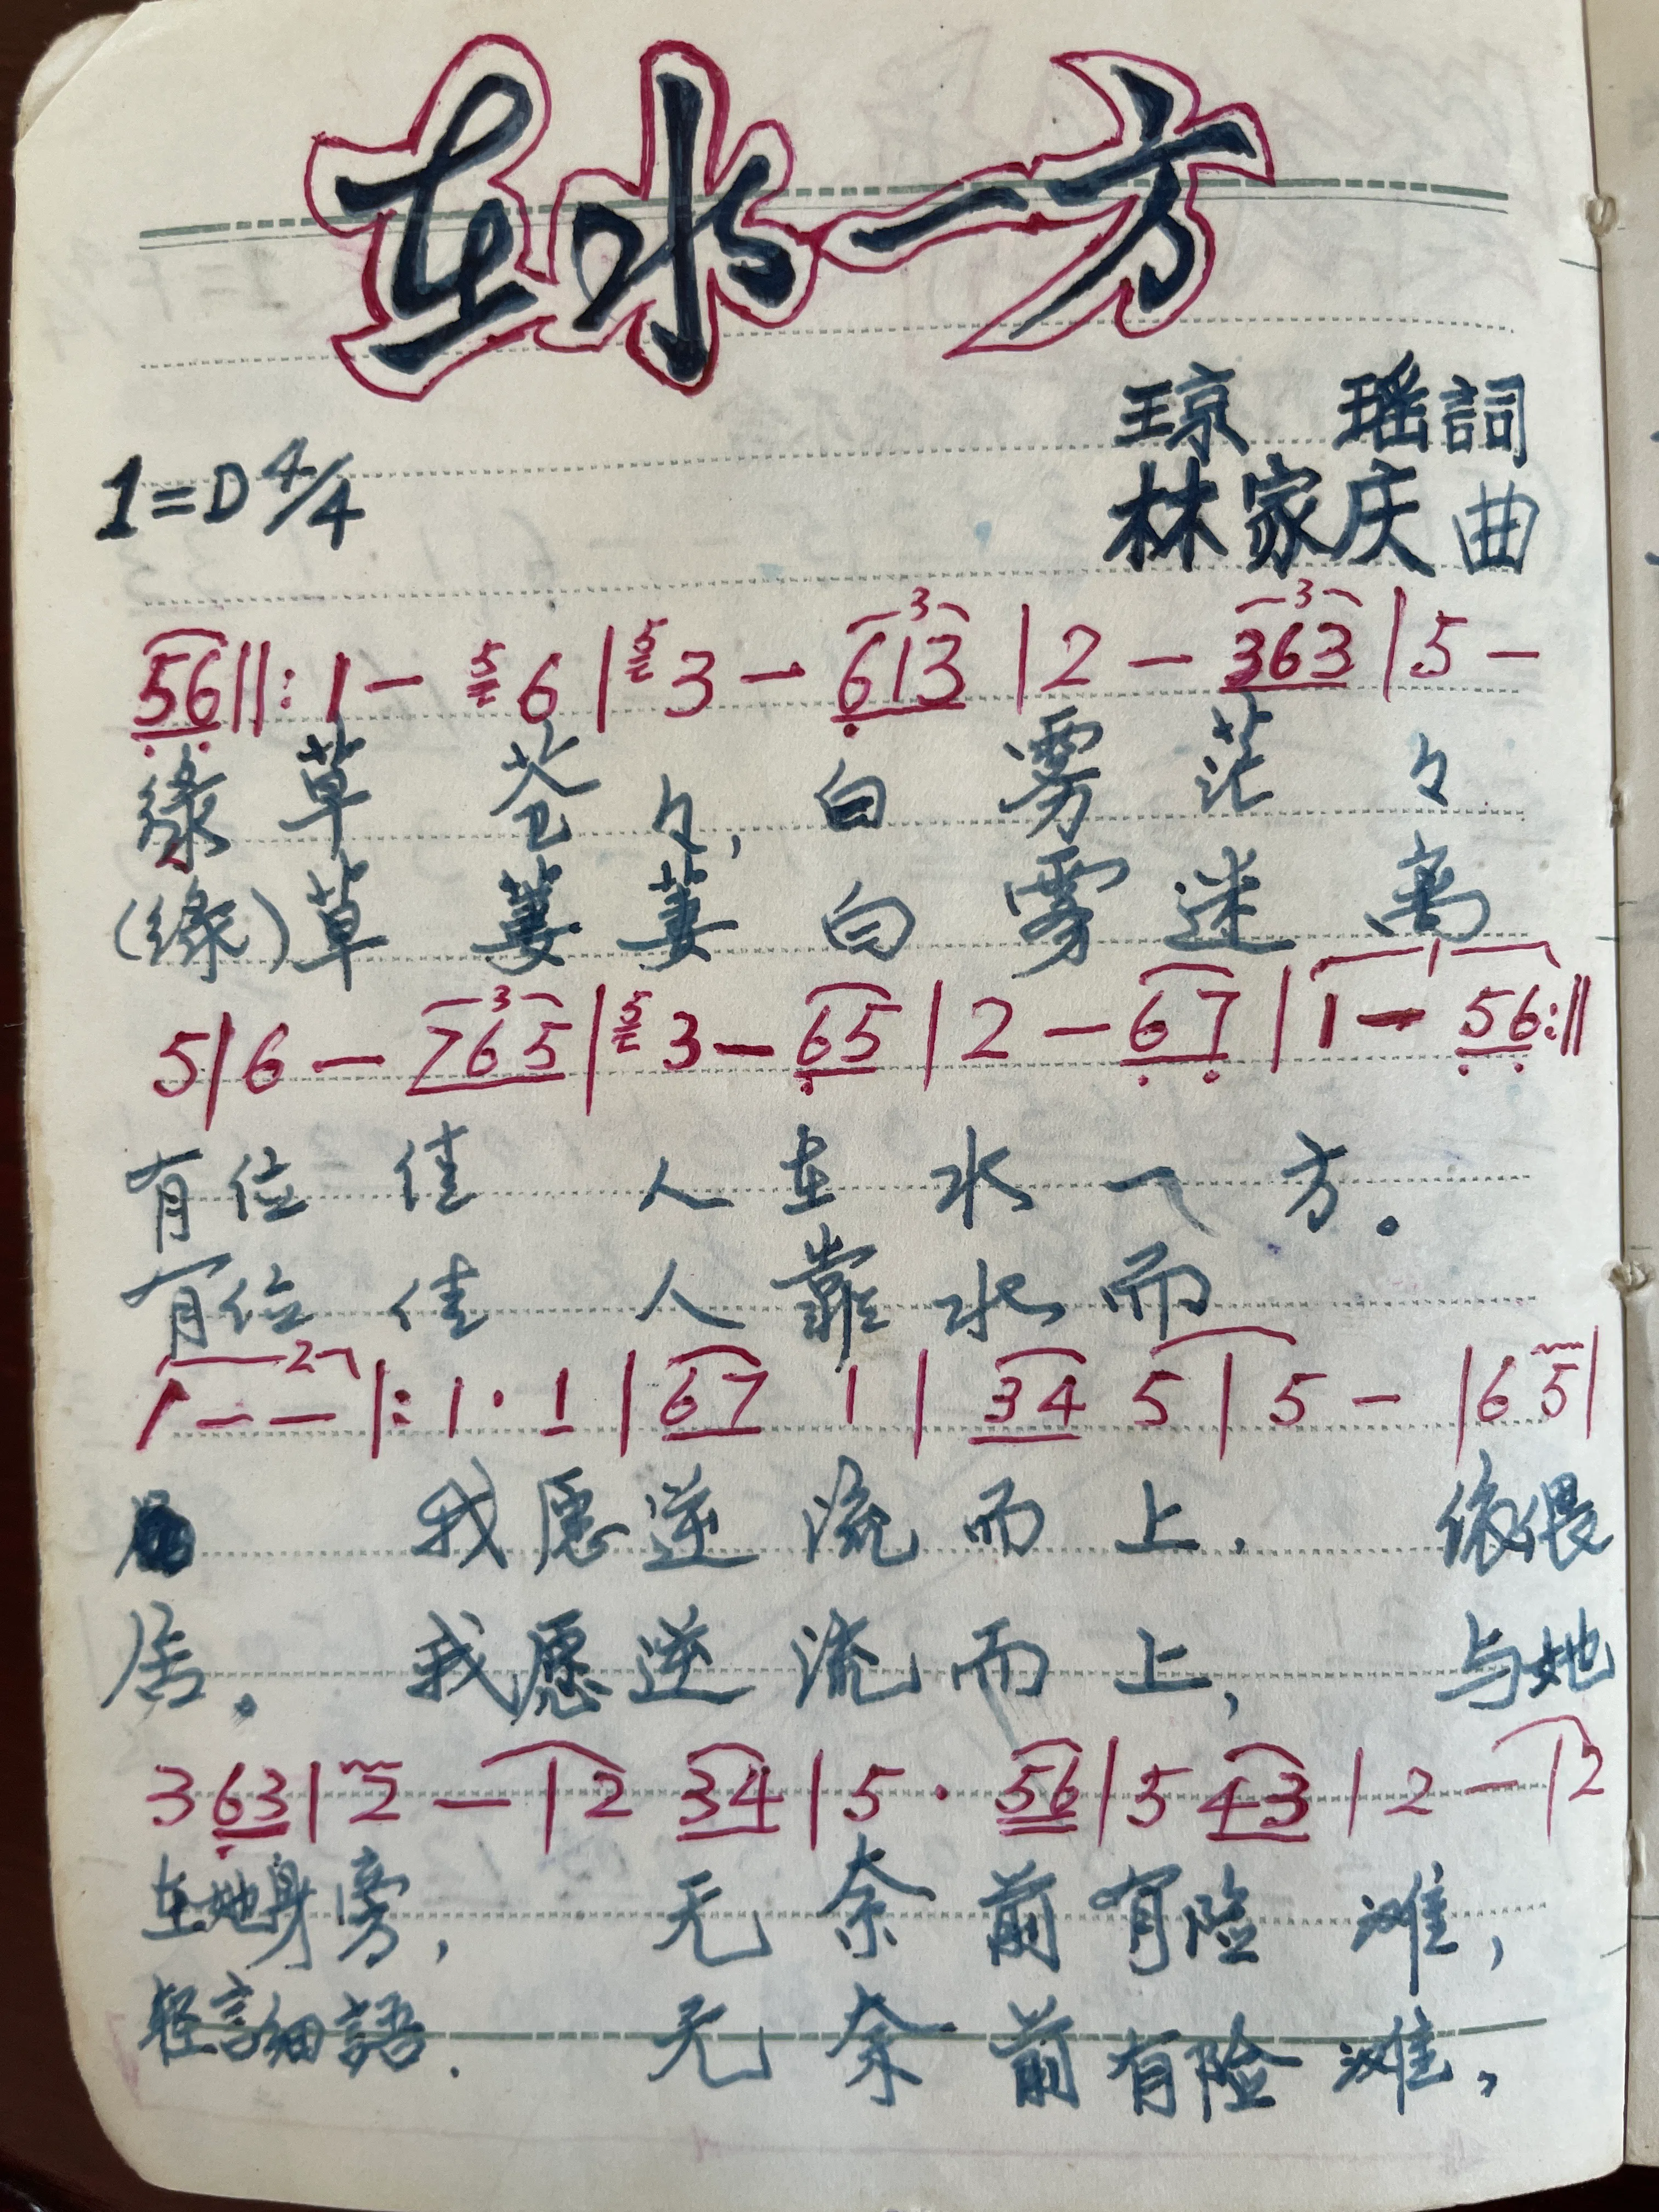 在水一方
琼 瑶 詞
1=D 4/4
林家庆 曲
56||: 1 - 5 6 | 5 3 - 3 613 | 2 - 3 363 | 5 -
綠 草 苍 々, 白 雾 茫 々
(綠) 草 萋 萋 白 雾 迷 离
5 | 6 - 3 765 | 5 3 - 65 | 2 - 67 | 1 1 - 56 :||
有 位 佳 人 在 水 一 方。
有 位 佳 人 靠 水 而
2 1 - - |: 1 · 1 | 67 1 | 34 5 | 5 - | 6 5 |
我 愿 逆 流 而 上. 依偎
居。 我 愿 逆 流 而 上, 与她
3 63 | 2 - | 2 34 | 5 · 56 | 5 43 | 2 - | 2
在她身旁, 无 奈 前 有 险 滩,
轻言細語. 无 奈 前 有 险 滩,